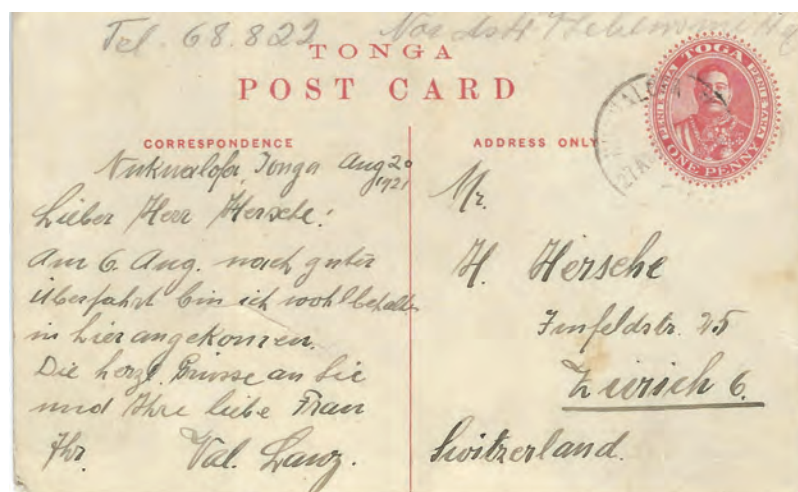 Tel. 68.822
TONGA
POST CARD
TOGA
PENI E TAHA
PENI E TAHA
ONE PENNY
27 A
CORRESPONDENCE
Nukualofa, Tonga Aug 20
1921
Lieber Herr Hersche!
Am 6. Aug. nach guter
Überfahrt bin ich wohlbehalten
in hier angekommen.
Die herzl. Grüsse an Sie
und Ihre liebe Frau
Ihr Val. Lanz.
ADDRESS ONLY
Mr.
H. Hersche
Imfeldstr. 25
Zürich 6.
Switzerland.